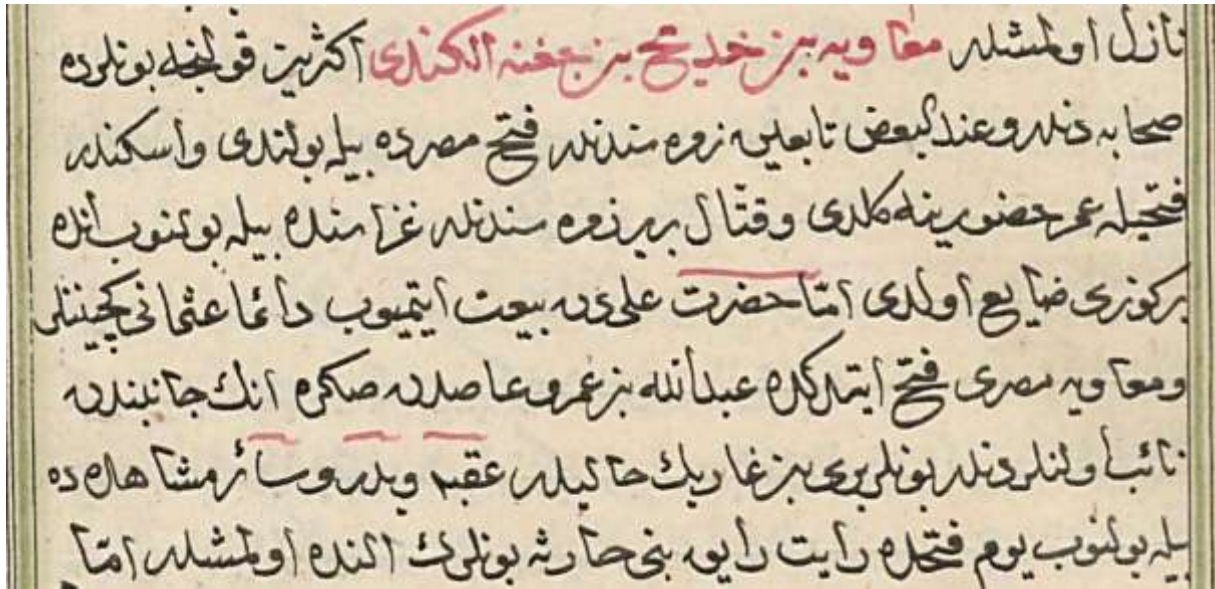 نازل اولمشلر معاويه بن خديج بن جفنه الكندى اكثرين قولنجه بونلرده
صحابه دندر وعند البعض تابعين زمره سندندر فتح مصرده بيله بولندى واسكندر
فتحيله عمر حضورينه كلدى وقتال بربر زمره سندندر غزا سنده بيله بولنوب انده
بر كوزى ضايع اولدى امّا حضرت على دن بيعت ايتميوب دائما عثمانى كچينتلر
ومعاويه مصرى فتح ايتدكده عبدالله بن عمرو عاصدن صكره انك جانبندن
نائب اولنلردندر بونلر برى بن عازبك خاليلر عقبه وبدر وسائر مشاهده ده
بيله بولنوب يوم فتحده رايت رايه بنى حارثه بونلرك النده اولمشلر امّا